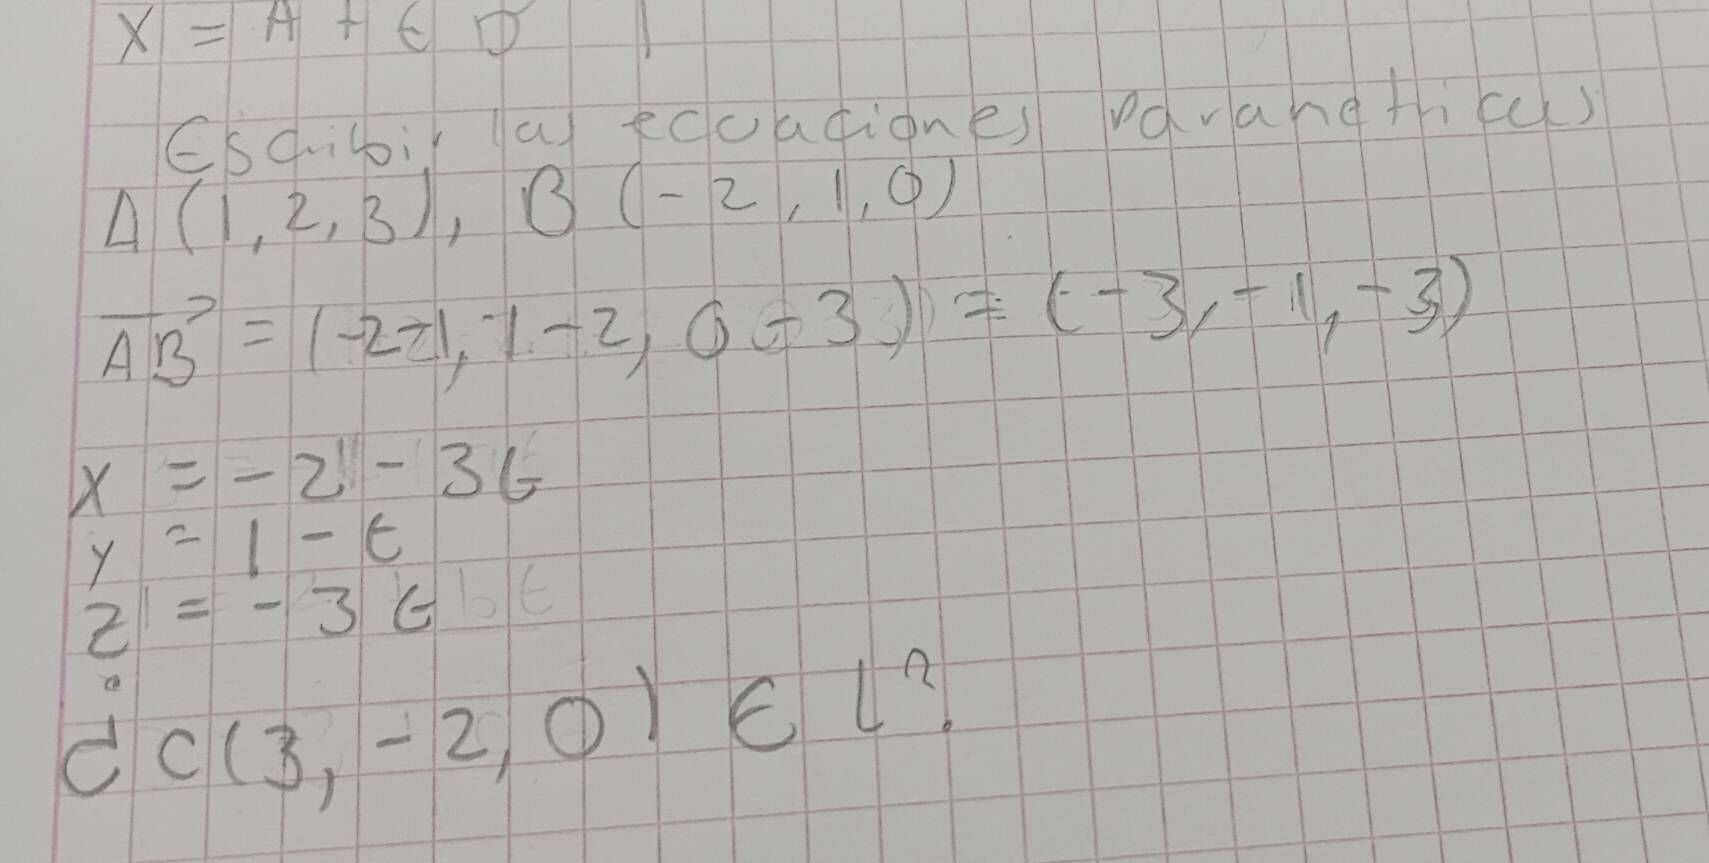 X = A + t v
Escribir las ecuaciones parametricas
A (1, 2, 3), B (-2, 1, 0)
AB = (-2-1, 1-2, 0-3) = (-3, -1, -3)
X = -2 - 3t
y = 1 - t
z = -3t
¿C(3, -2, 0) ∈ L?